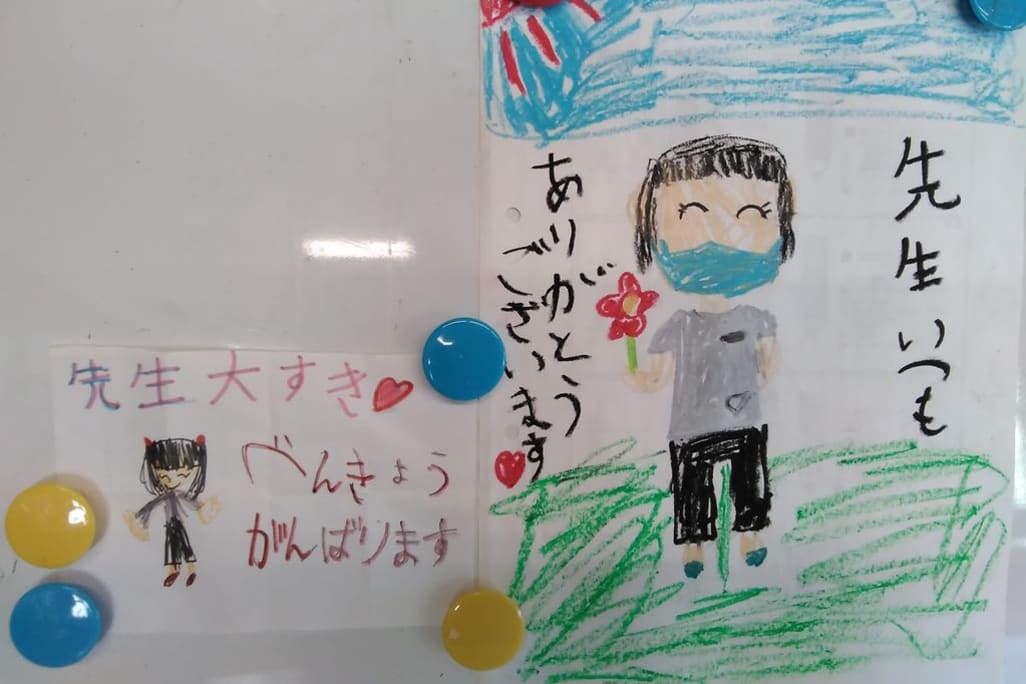 先生大すき
べんきょう
がんばります
先生いつも
ありがとう
ございます